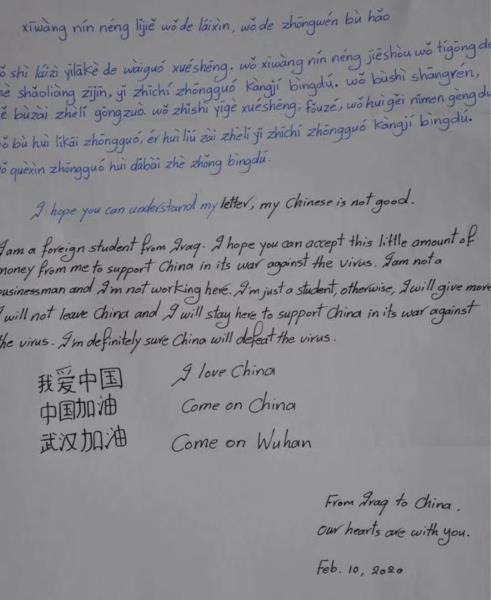 xīwàng nín néng lǐjiě wǒde láixìn, wǒde zhōngwén bù hǎo
shì láizì yīlākè de wàiguó xuéshēng. wǒ xīwàng nín néng jiēshòu wǒ tígōng de
shǎoliàng zījīn, yǐ zhīchí zhōngguó kàngjí bìngdú. wǒ bùshì shāngrén,
bùzài zhèlǐ gōngzuò. wǒ zhǐshì yīgè xuéshēng, fǒuzé, wǒ huì gěi nǐmen gèng du
bù huì líkāi zhōngguó, ér huì liú zài zhèlǐ yǐ zhīchí zhōngguó kàngjí bìngdú.
quèxìn zhōngguó huì dǎbài zhè zhǒng bìngdú.
I hope you can understand my letter, my Chinese is not good.
I am a foreign student from Iraq. I hope you can accept this little amount of
money from me to support China in its war against the virus. I am not a
businessman and I'm not working here. I'm just a student, otherwise, I will give more
I will not leave China and I will stay here to support China in its war against
the virus. I'm definitely sure China will defeat the virus.
我爱中国 I love China
中国加油 Come on China
武汉加油 Come on Wuhan
From Iraq to China.
Our hearts are with you.
Feb. 10, 2020